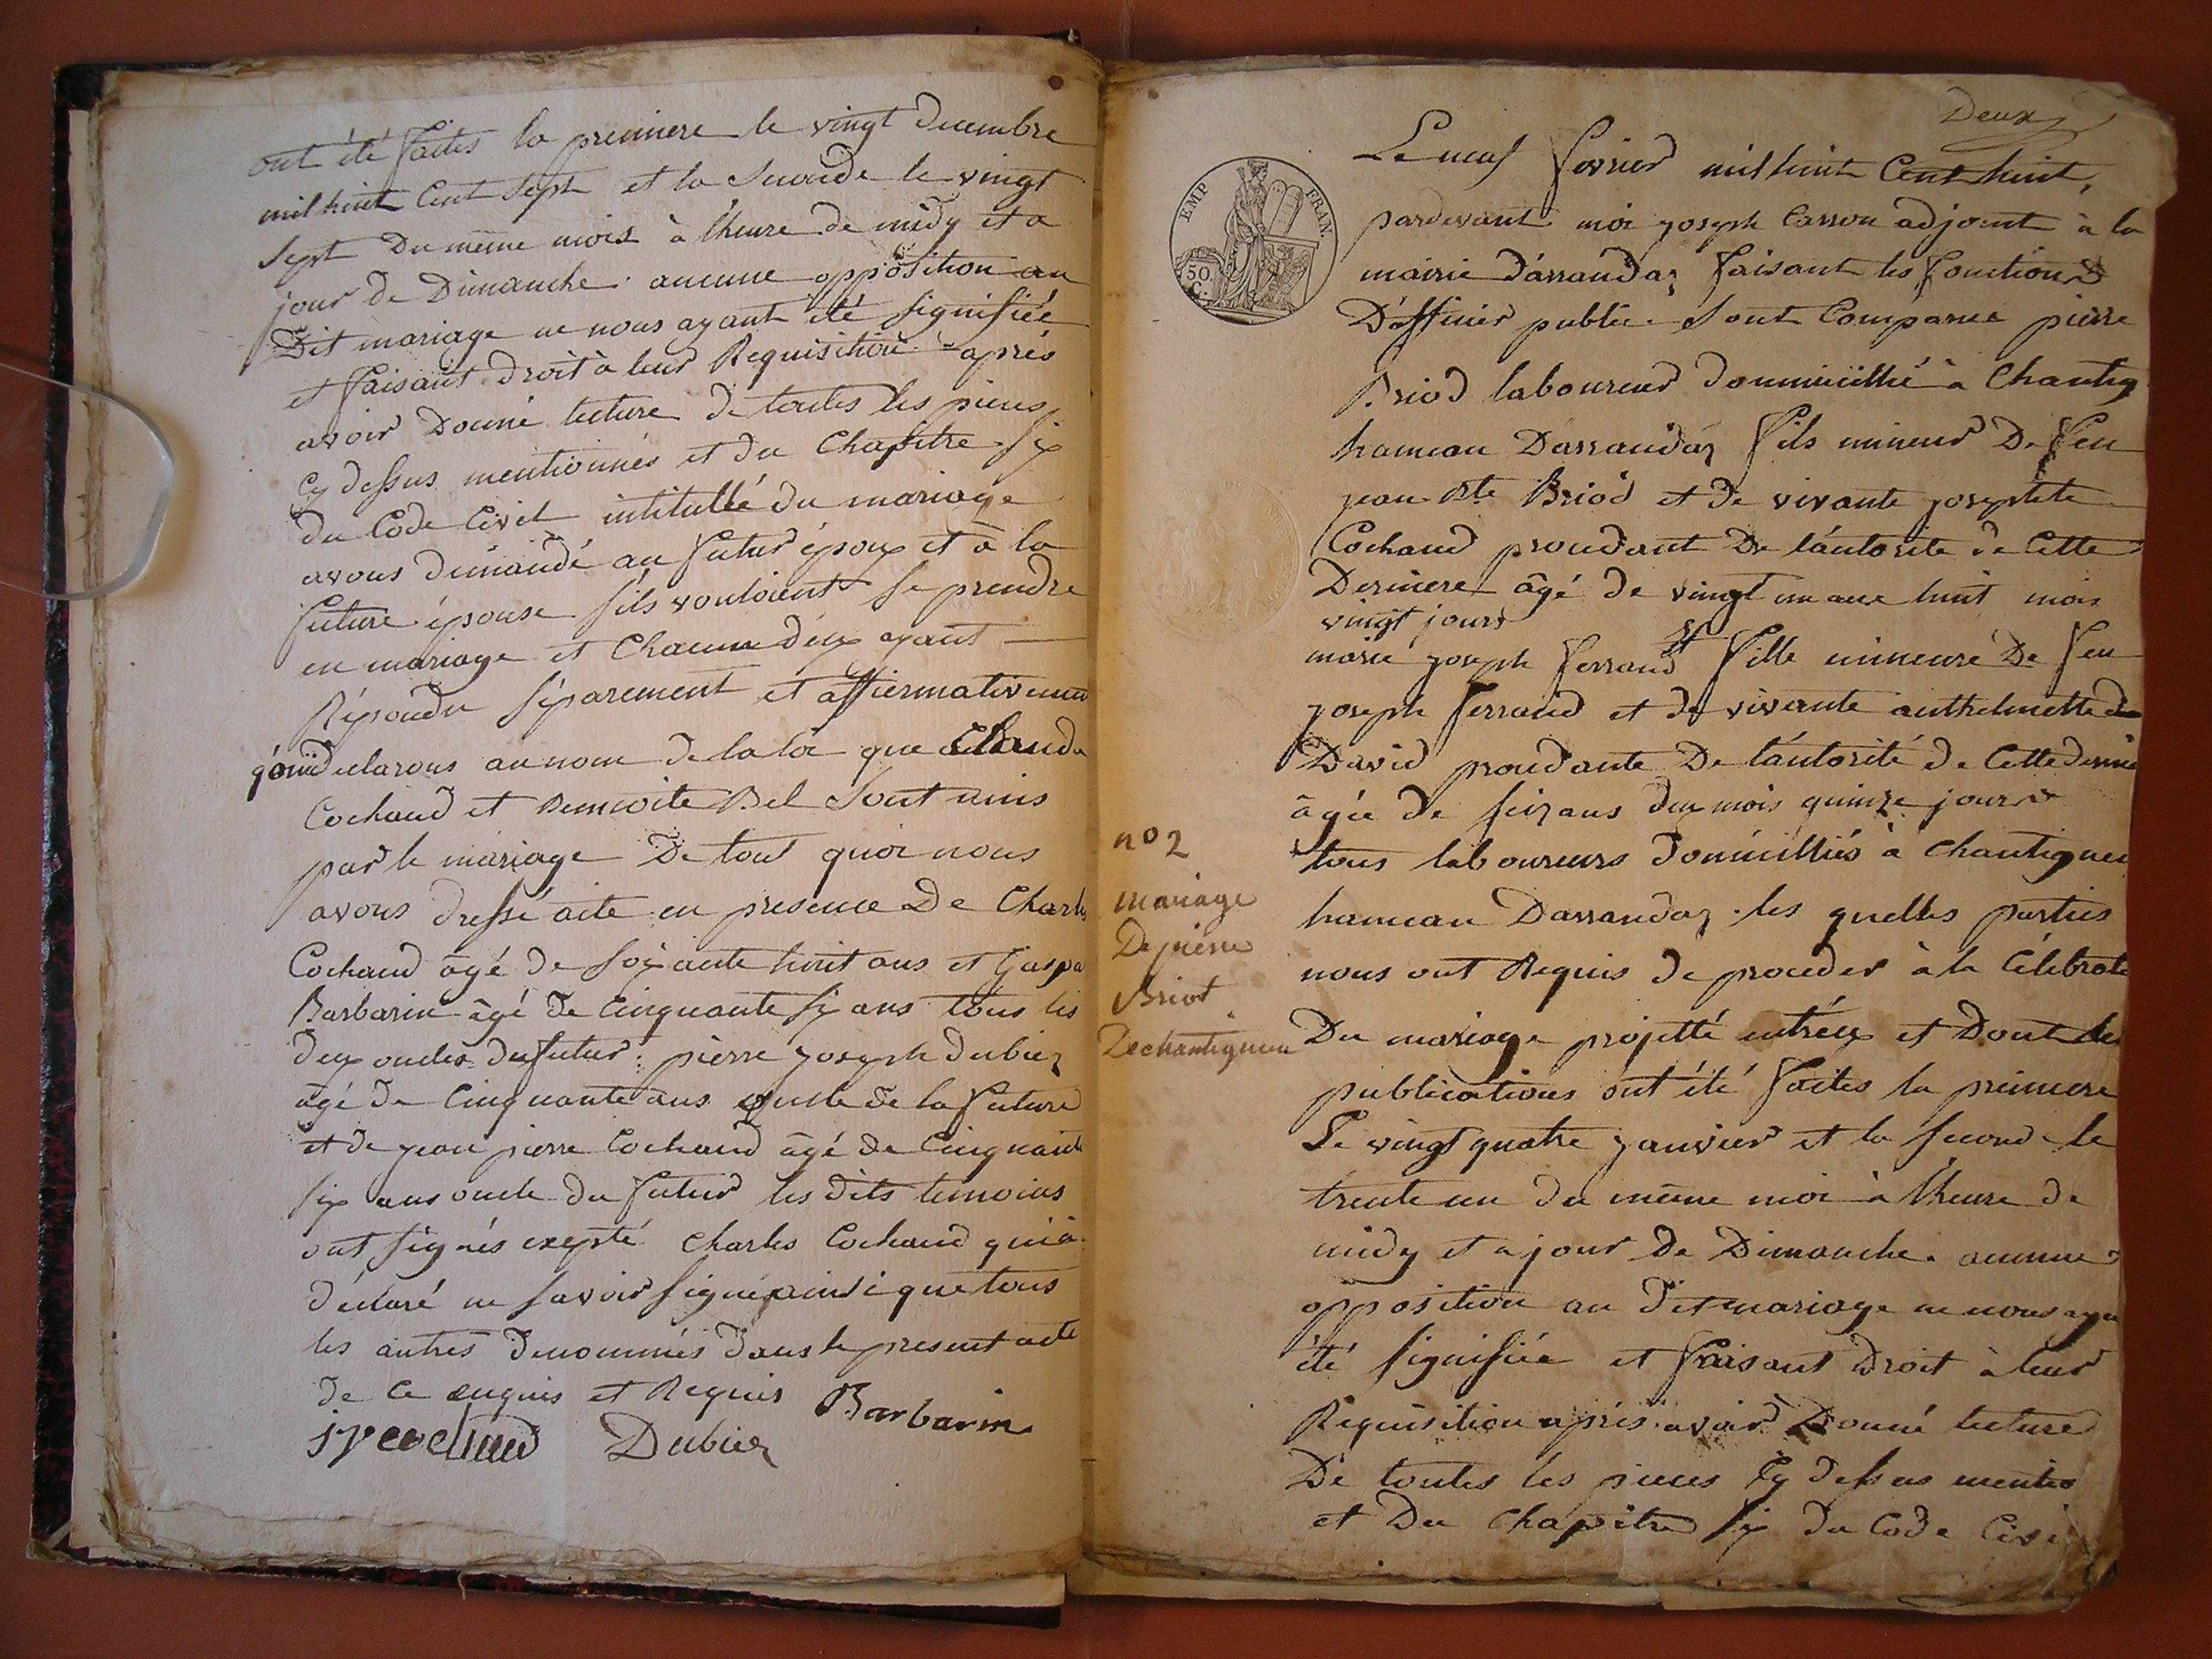 ont été faites la premiere le vingt decembre
mil huit Cent Sept et la Seconde le vingt
Sept Du même mois à l'heure de midy et a
jour de Dimanche. aucune opposition au
Dit mariage ne nous ayant été signifiée
et faisant droit à leur Requisition après
avoir Donné lecture de toutes les pieces
Cy dessus mentionnés et du Chapitre six
du Code Civil intitullé du mariage
avons demandé au futur époux et à la
future épouse s'ils vouloient se prendre
en mariage et Chacun d'eux ayant
Répondu séparement et affiermativement
declarons au nom de la loi que Claude
Cochaud et Benoite Bel sont unis
par le mariage De tout quoi nous
avons dressé acte en presence De Charles
Cochaud âgé de soixante huit ans et Gaspa
Barbarin âgé de Cinquante six ans tous les
deux oncles du futur: pierre joseph dubiez
âgé de Cinquante ans oncle de la future
et de jean pierre Cochaud âgé de Cinquante
six ans oncle du futur les dits temoins
ont signés exepté Charles Cochaud qui a
déclaré ne savoir signé ainsi que tous
les autres denommés dans le present acte
de Ce enquis et Requis Barbarin
jp cochaud Dubiez
Deux
EMP FRAN.
50 C.
Le neuf fevrier mil huit Cent huit,
pardevant moi joseph Carron adjoint à la
mairie d'arrandaz faisant les fonctions
D'officier public. Sont Comparus pierre
Briod laboureur dommicillié à Chantig
hameau Darrandaz fils mineur De feu
jean Bte Briod et de vivante josephte
Cochaud procédant De l'autorité de Cette
Derniere âgé de vingt un ans huit mois
vingt jours et
marie joseph ferrand fille mineure De feu
joseph ferrand et de vivante anthelmette
David procédante De l'autorité de Cette derniè
âgée de seize ans deux mois quinze jours
tous laboureurs domicilliés à Chantigneu
hameau Darrandaz. les quelles parties
nous ont Requis de proceder à la Célébrati
Du mariage projetté entr'eux et Dont les
publications ont été faites la premiere
Le vingt quatre janvier et la seconde le
trente un du même moi à l'heure de
midy et a jour de Dimanche. aucune
opposition au dit mariage ne nous aya
été signifiée et faisant Droit à leur
Requisition après avoir Donné lecture
De toutes les pieces Cy dessus mentio
et Du Chapitre six du Code Civi
n° 2
mariage
De pierre
Briot
De chantigneu